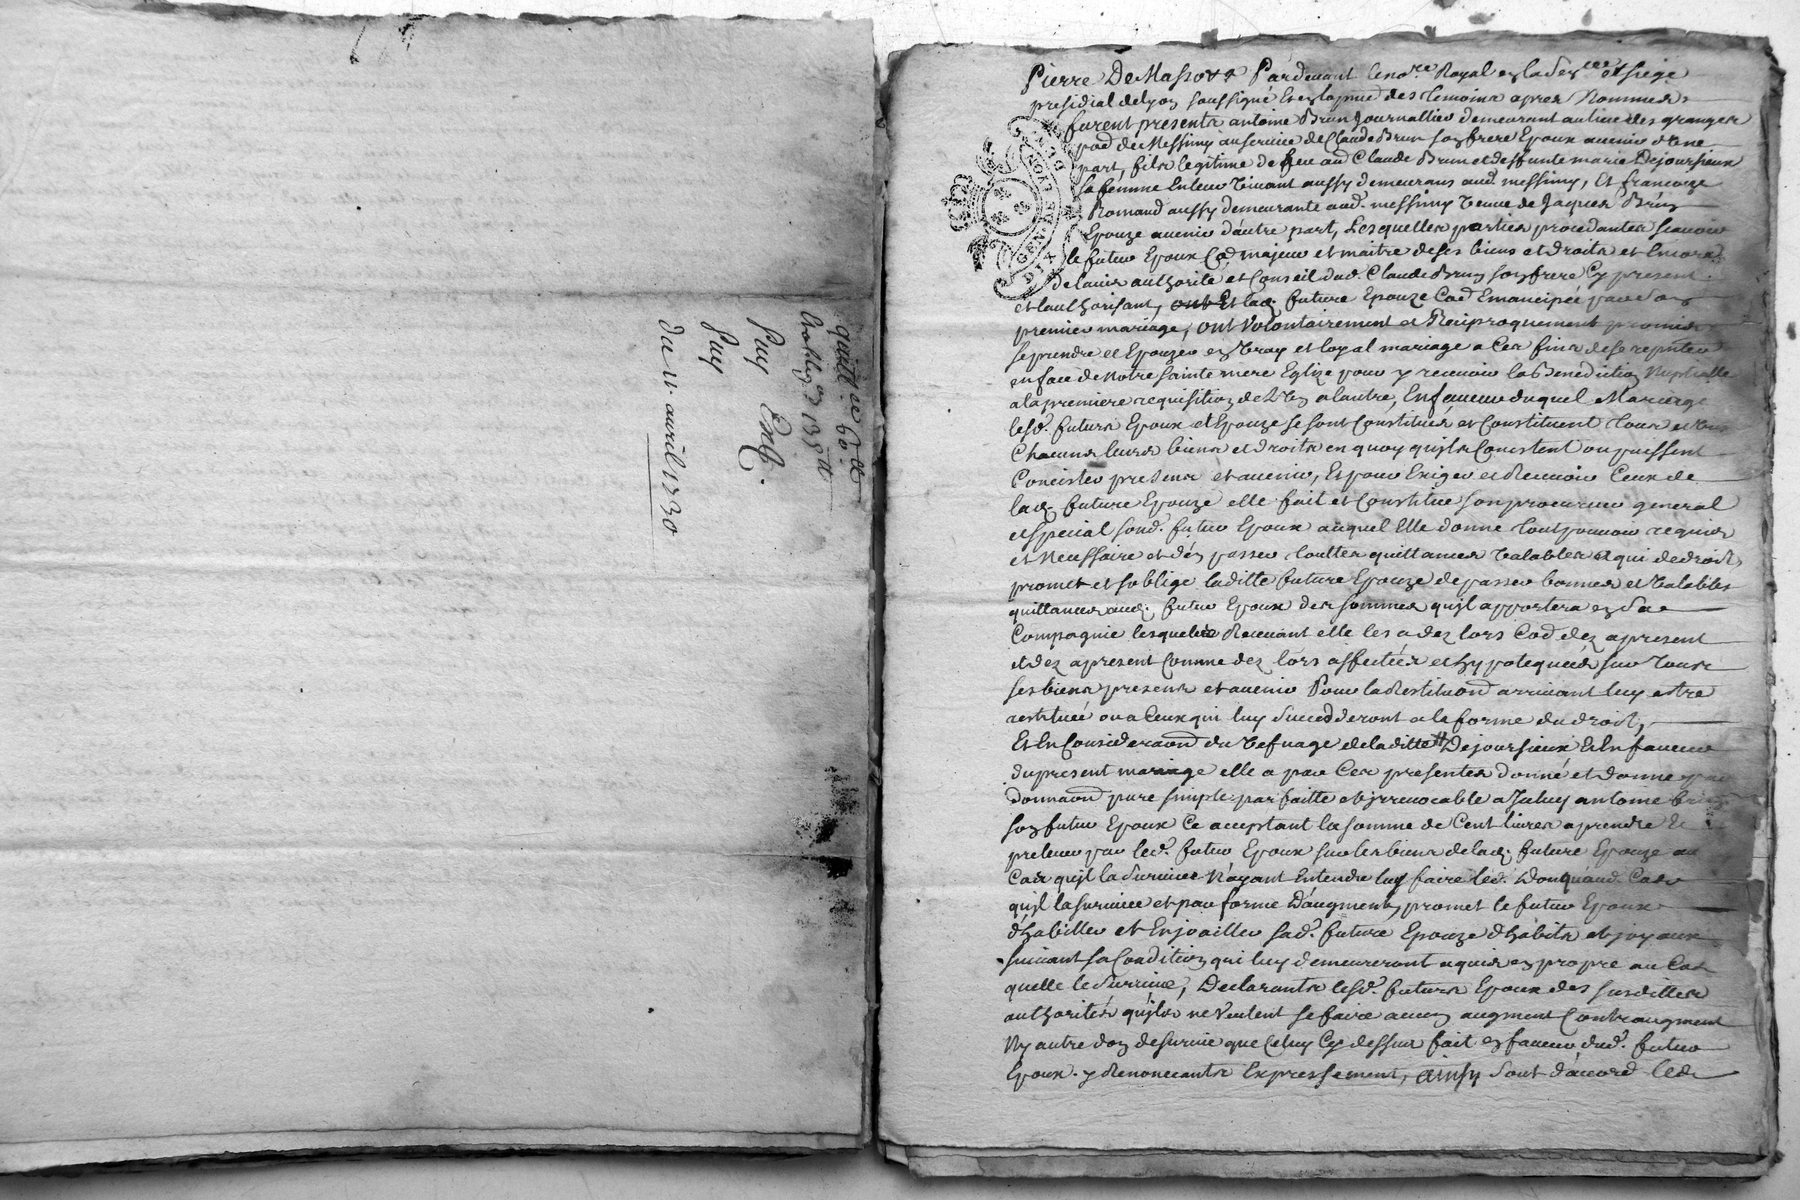 quitt. ce 60.tt
Du 11. avril 1730
GEN. DE LYON
Pierre De Masso &c Pardevant le no.re Royal en la sen.cee et siege
presidial de lyon soussigné et en la pnce des temoins apres Nommés
furent presents antoine Brun Journallier demeurant au lieu des granges
pad de Messimy au service de Claude Brun son frere Epoux avenir d'une
part, fils legitime de feu aud Claude Brun et deffunte marie Dejoursieux
sa femme Enleur vivant aussy demeurans aud. messimy, Et francoize
Romand aussy demeurante aud. messimy veuve de Jaques Brun
Epouze avenir d'autre part, Lesquelles parties procedantes scavoir
le futur Epoux Co᷉e majeur et maitre de ses biens et droits et Encore
de lavis authorité et Conseil dud. Claude Brun son frere Cy present
et lauthorisant, Et lad. future Epouze Co᷉e Emancipée par son
premier mariage, ont volontairement et Reciproquement promis
se prendre et Epouzer en vray et loyal mariage a Ces fins de se repnter
en face de Notre sainte mere Eglize pour y recevoir la Benediction Nuptialle
a la premiere requisition de l'un a lautre, En faveur duquel Mariage
lesd. futurs Epoux et Epouze se sont Constitués et Constituent tous et uns
Chacuns leurs biens et droits en quoy quils Consistent ou puissent
Concister presens et avenir, Et pour Exiger et Recevoir Ceux de
lad. future Epouze elle fait et Constitue son procureur general
et special sond. futur Epoux auquel Elle donne tout pouvoir requis
et Necessaire et d'en passer touttes quittances valables a qui de droit,
promet et soblige laditte future Epouze de passer bonnes et valables
quittances aud. futur Epoux des sommes qu'il apportera en sa
Compagnie lesquelles Recevant elle les a dez lors Co᷉e dez apresent
et dez apresent Comme dez lors affectées et hypotequées sur tous
ses biens presens et avenir Pour la Restituon arrivant luy estre
restituée ou a Ceux qui luy succedderont a la forme du droit,
Et En Consideraon du vefvage de laditte Dejoursieux Et En faveur
du present mariage elle a par Ces presentes donné et donne par
donnaon pure simple parfaitte et irrevocable a Iceluy antoine brun
son futur Epoux Ce acceptant la somme de Cent livres a prendre Et
prelever par led. futur Epoux sur les biens de lad. future Epouze au
Cas qu'il la survive N'ayant Entendu luy faire led. Don quaud. Cas
qu'il la survive et par forme D'augment, promet le futur Epoux
d'habiller et Enjoailler sad. future Epouze d'habits et joyaux
suivant sa Condition qui luy demeureront aquis en propre au Cas
quelle le survive, Declarants lesd. futurs Epoux des susdittes
authorités qu'ils ne Veulent se faire aucun augment Contraugment
Ny autre don de survie que Celuy Cy dessus fait en faveur dud. futur
Epoux. y Renoncants Expressement, ainsy sont d'acord lesd